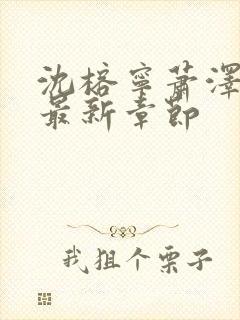 沈榕寧蕭澤
最新章節
我狙个栗子